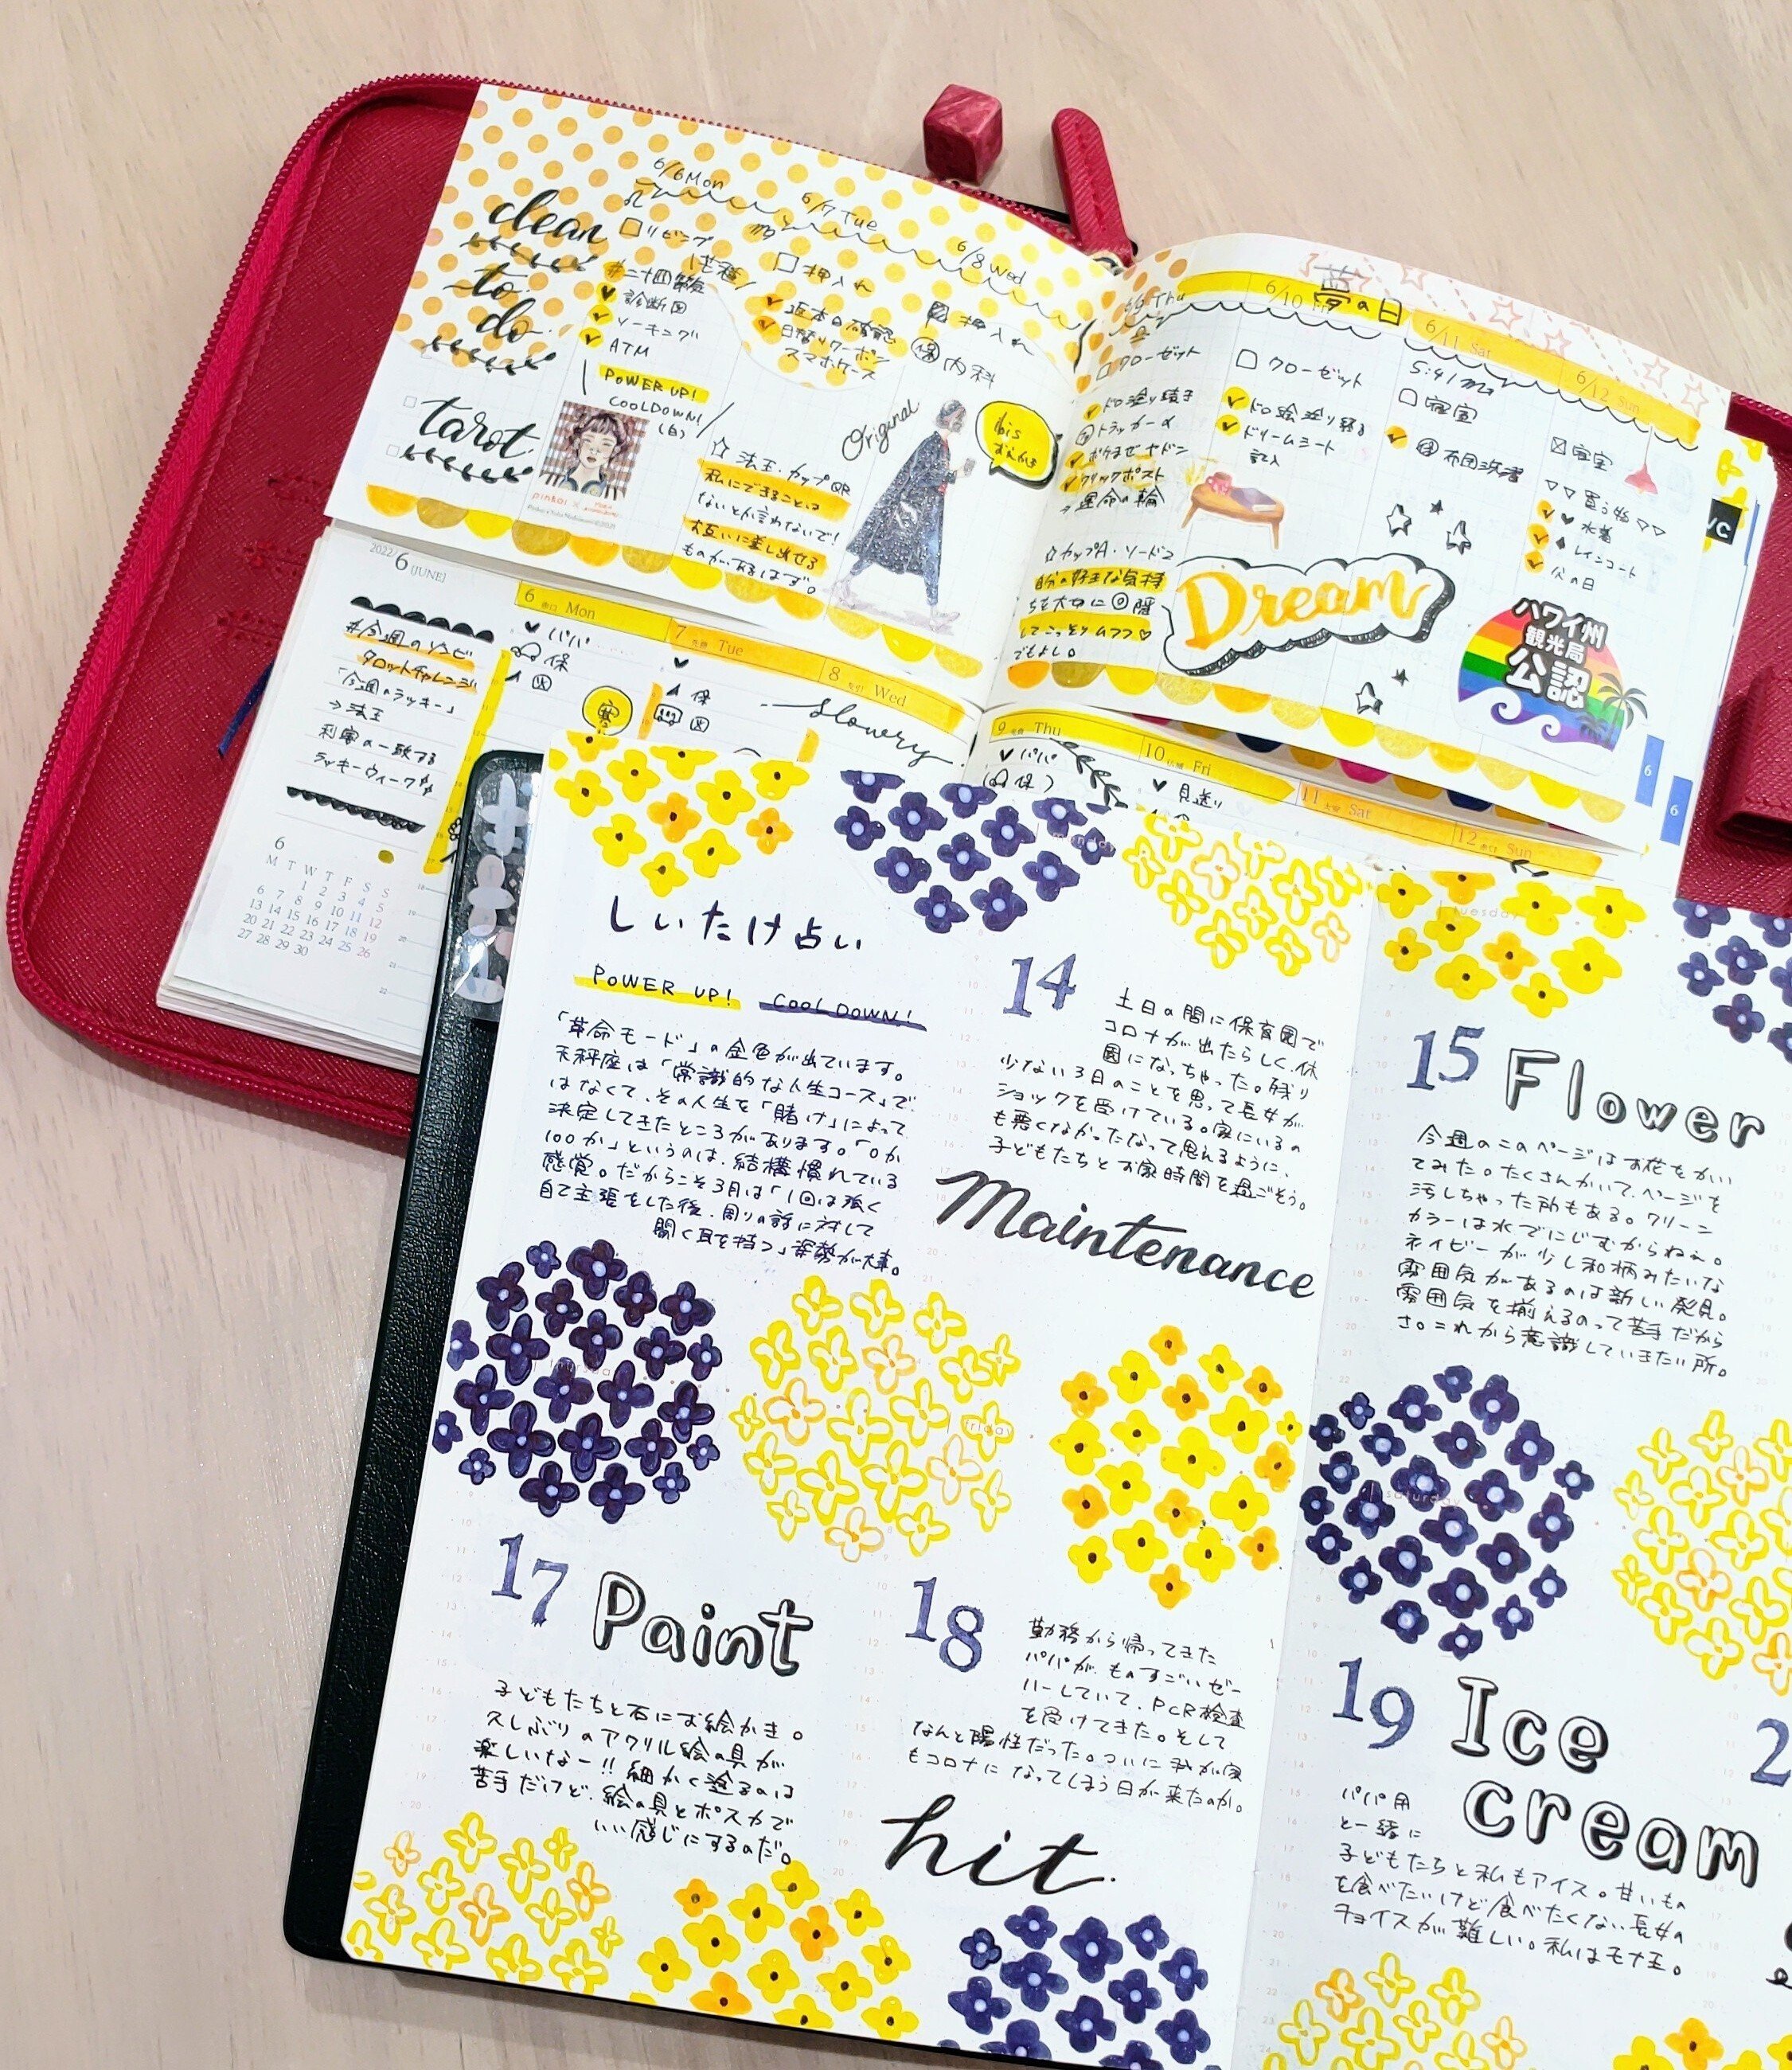 6/6 Mon
6/7 Tue
6/8 Wed
clean
to
do
リビング
#二十四節気
芒種
診断図
ソーキング
ATM
POWER UP!
COOLDOWN!
(白)
押入れ
返本の確認
日替りクーポン
スマホケース
押入れ
保 内科
tarot
pinkoi
☆法王・カップQR
私にできることは
ないとか言わないで!
大互いに差し出せる
ものがあるはず。
Original
ibis
Thu
6/10
夢の日
6/11 Sat
6/12 Sun
クローゼット
ドロ塗り続き
クリックポスト
→運命の輪
☆カップA・ソード2
自分の好きな気持
ちを大切に
してこっそりムフフ♡
でもよし。
クローゼット
ドロ絵塗り終る
ドリームシート
記入
5:41
寝室
布団洗濯
寝室
▽▽買う物▽▽
水着
レインコート
父の日
Dream
ハワイ州
観光局
公認
6
6
2022/
6 [JUNE]
#今週のゾンビ
タロットチャレンジ
「今週のラッキー」
→法王
利害の一致する
ラッキーウィーク
6
M T W T F S S
1 2 3 4 5
6 7 8 9 10 11 12
13 14 15 16 17 18 19
20 21 22 23 24 25 26
27 28 29 30
6 Mon
パパ
保
7 Tue
保
寒
8 Wed
slowly
9 Thu
パパ
(保)
10 Fri
見送り
11 Sat
12 Sun
しいたけ占い
POWER UP! COOL DOWN!
「革命モード」の金色が出ています。
天秤座は「常識的な人生コース」で
はなくて、その人生を「賭け」によって
決定してきたところがあります。「0か
100か」というのは、結構慣れている
感覚。だからこそ3月は「1回は強く
自己主張をした後、周りの話に対して
聞く耳を持つ」姿勢が大事。
monday
14
土日の間に保育園で
コロナが出たらしく、休
園になっちゃった。残り
少ない3月のことを思って長女が
ショックを受けている。家にいるの
も悪くなかったなって思えるように、
子どもたちとお家時間を過ごそう。
Maintenance
tuesday
15
Flower
今週のこのページはお花をかい
てみた。たくさんかいて、ページを
汚しちゃった所もある。クリーン
カラーは水でにじむからねぇ。
ネイビーが少し和柄みたいな
雰囲気があるのは新しい発見。
雰囲気を揃えるのって苦手だから
さ。これから意識していきたい所。
thursday
17
Paint
子どもたちと石にお絵かき。
久しぶりのアクリル絵の具が
楽しいなー!!細かく塗るのは
苦手だけど、絵の具とポスカで
いい感じにするのだ。
friday
18
勤務から帰ってきた
パパが、ものすごいゼー
ハーしていて、PCR検査
を受けてきた。そして
なんと陽性だった。ついに我が家
もコロナになってしまう日が来たのか。
hit.
saturday
19
Ice
cream
パパ用
と一緒に
子どもたちと私もアイス。甘いもの
を食べたいけど食べたくない長女の
チョイスが難しい。私はモナ王。
2